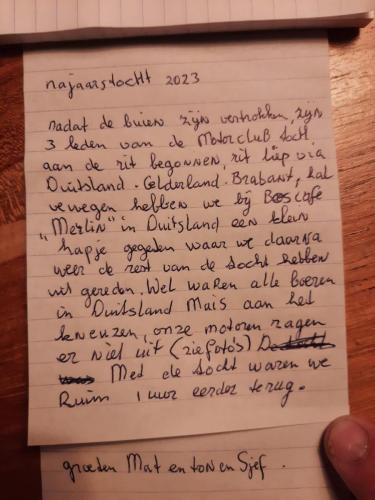 najaarstocht 2023
nadat de buien zijn vertrokken, zijn
3 leden van de Motorclub toch
aan de rit begonnen, rit liep via
Duitsland. Gelderland. Brabant,
wegen hebben we bij Boscafe
"Merlin" in Duitsland een klein
hapje gegeten waar we daarna
weer de rest van de tocht hebben
uit gereden. Wel waren alle boeren
in Duitsland Mais aan het
kneuzen, onze motoren zagen
er niet uit (zie foto's)
Met de tocht waren we
Ruim 1 uur eerder terug.
groeten Mat en ton en Sjef.